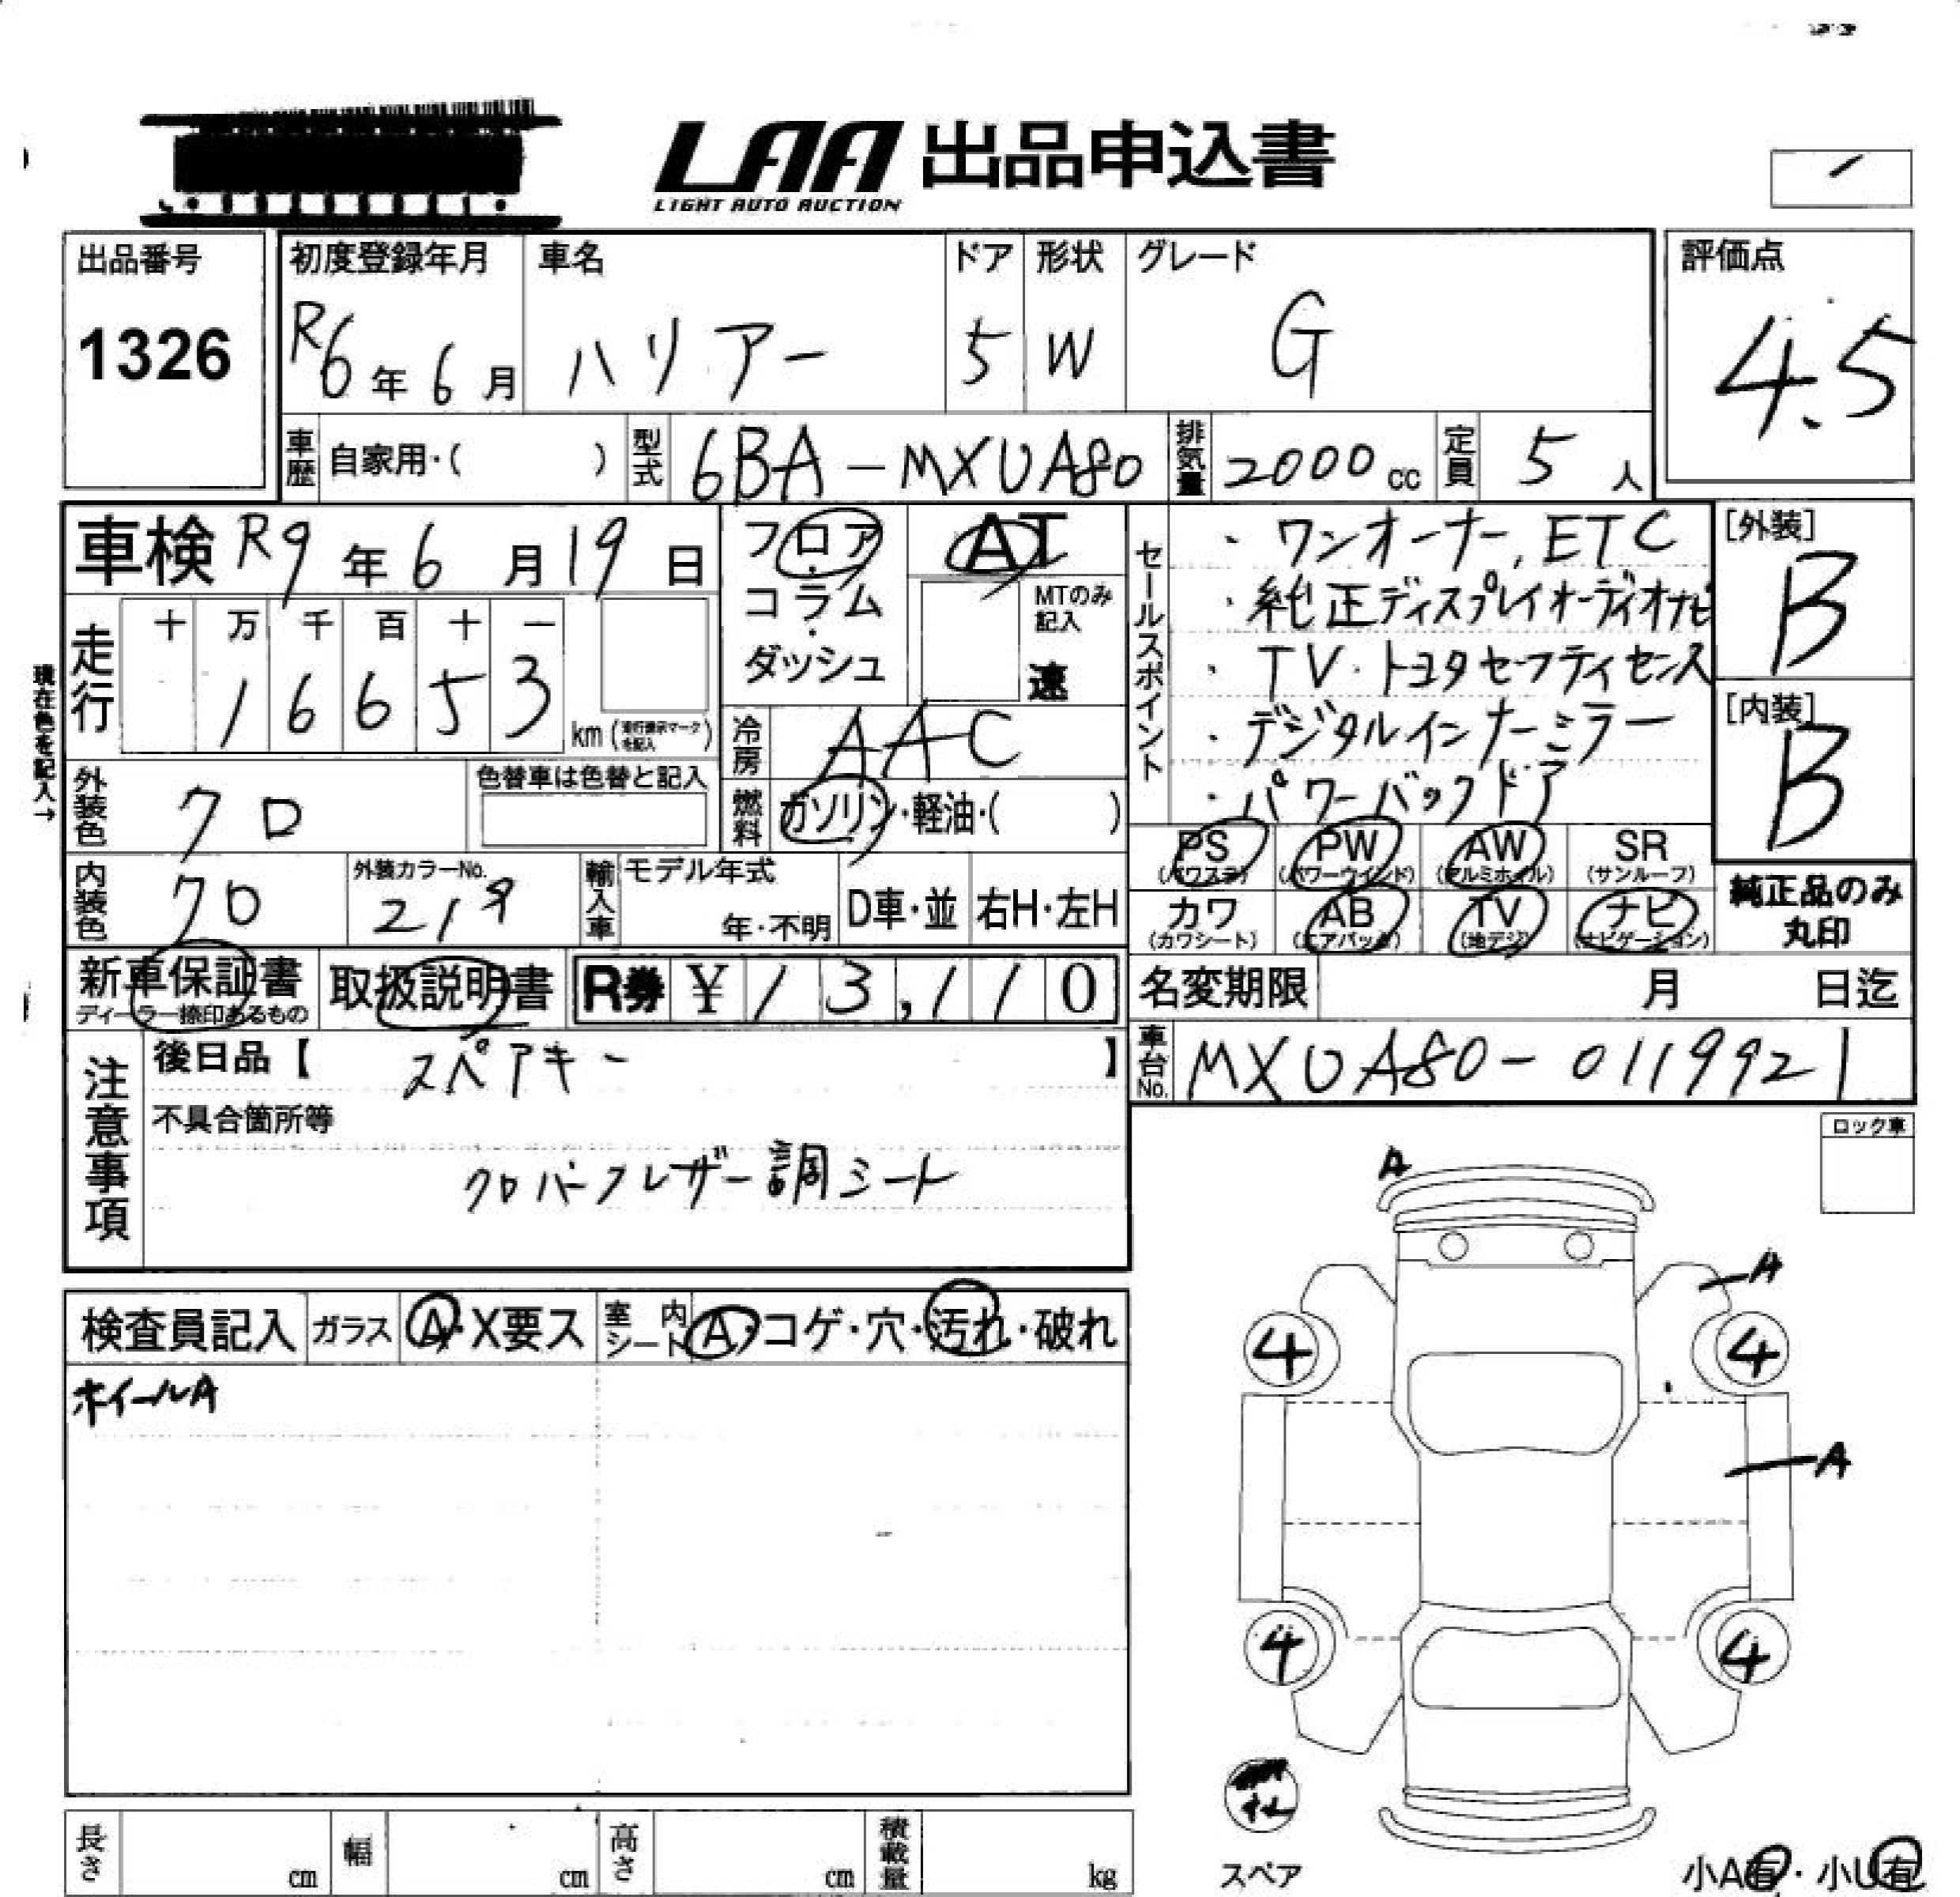 LAA 出品申込書
LIGHT AUTO AUCTION
出品番号
1326
初度登録年月
R6年6月
車名
ハリアー
ドア
5
形状
W
グレード
G
評価点
4.5
車歴 自家用・( )
型式 6BA-MXUA80
排気量 2000cc
定員 5人
車検 R9年6月19日
走行
十 万 千 百 十 一
1 6 6 5 3
km (走行表示マークを記入)
現在色を記入→
フロア
・
コラム
・
ダッシュ
AT
MTのみ記入
速
冷房 AAC
燃料 ガソリン・軽油・( )
セールスポイント
・ワンオーナー、ETC
・純正ディスプレイオーディオナビ
・TV・トヨタセーフティセンス
・デジタルインナーミラー
・パワーバックドア
[外装]
B
[内装]
B
外装色 クロ
色替車は色替と記入
内装色 クロ
外装カラーNo.
219
輸入車
モデル年式
年・不明
D車・並
右H・左H
PS
(パワステ)
PW
(パワーウインド)
AW
(アルミホイル)
SR
(サンルーフ)
カワ
(カワシート)
AB
(エアバック)
TV
(地デジ)
ナビ
(ナビゲーション)
純正品のみ
丸印
新車保証書
ディーラー捺印あるもの
取扱説明書
R券 ¥13,110
名変期限 月 日迄
車台No. MXUA80-0119921
注意事項
後日品【 スペアキー 】
不具合箇所等
クロハーフレザー調シート
ロック車
検査員記入
ガラス A・X要ス
室内シート A・コゲ・穴・汚れ・破れ
ホイールA
A
A
4
4
A
4
4
スペア
小A有・小U有
長さ cm
幅 cm
高さ cm
積載量 kg